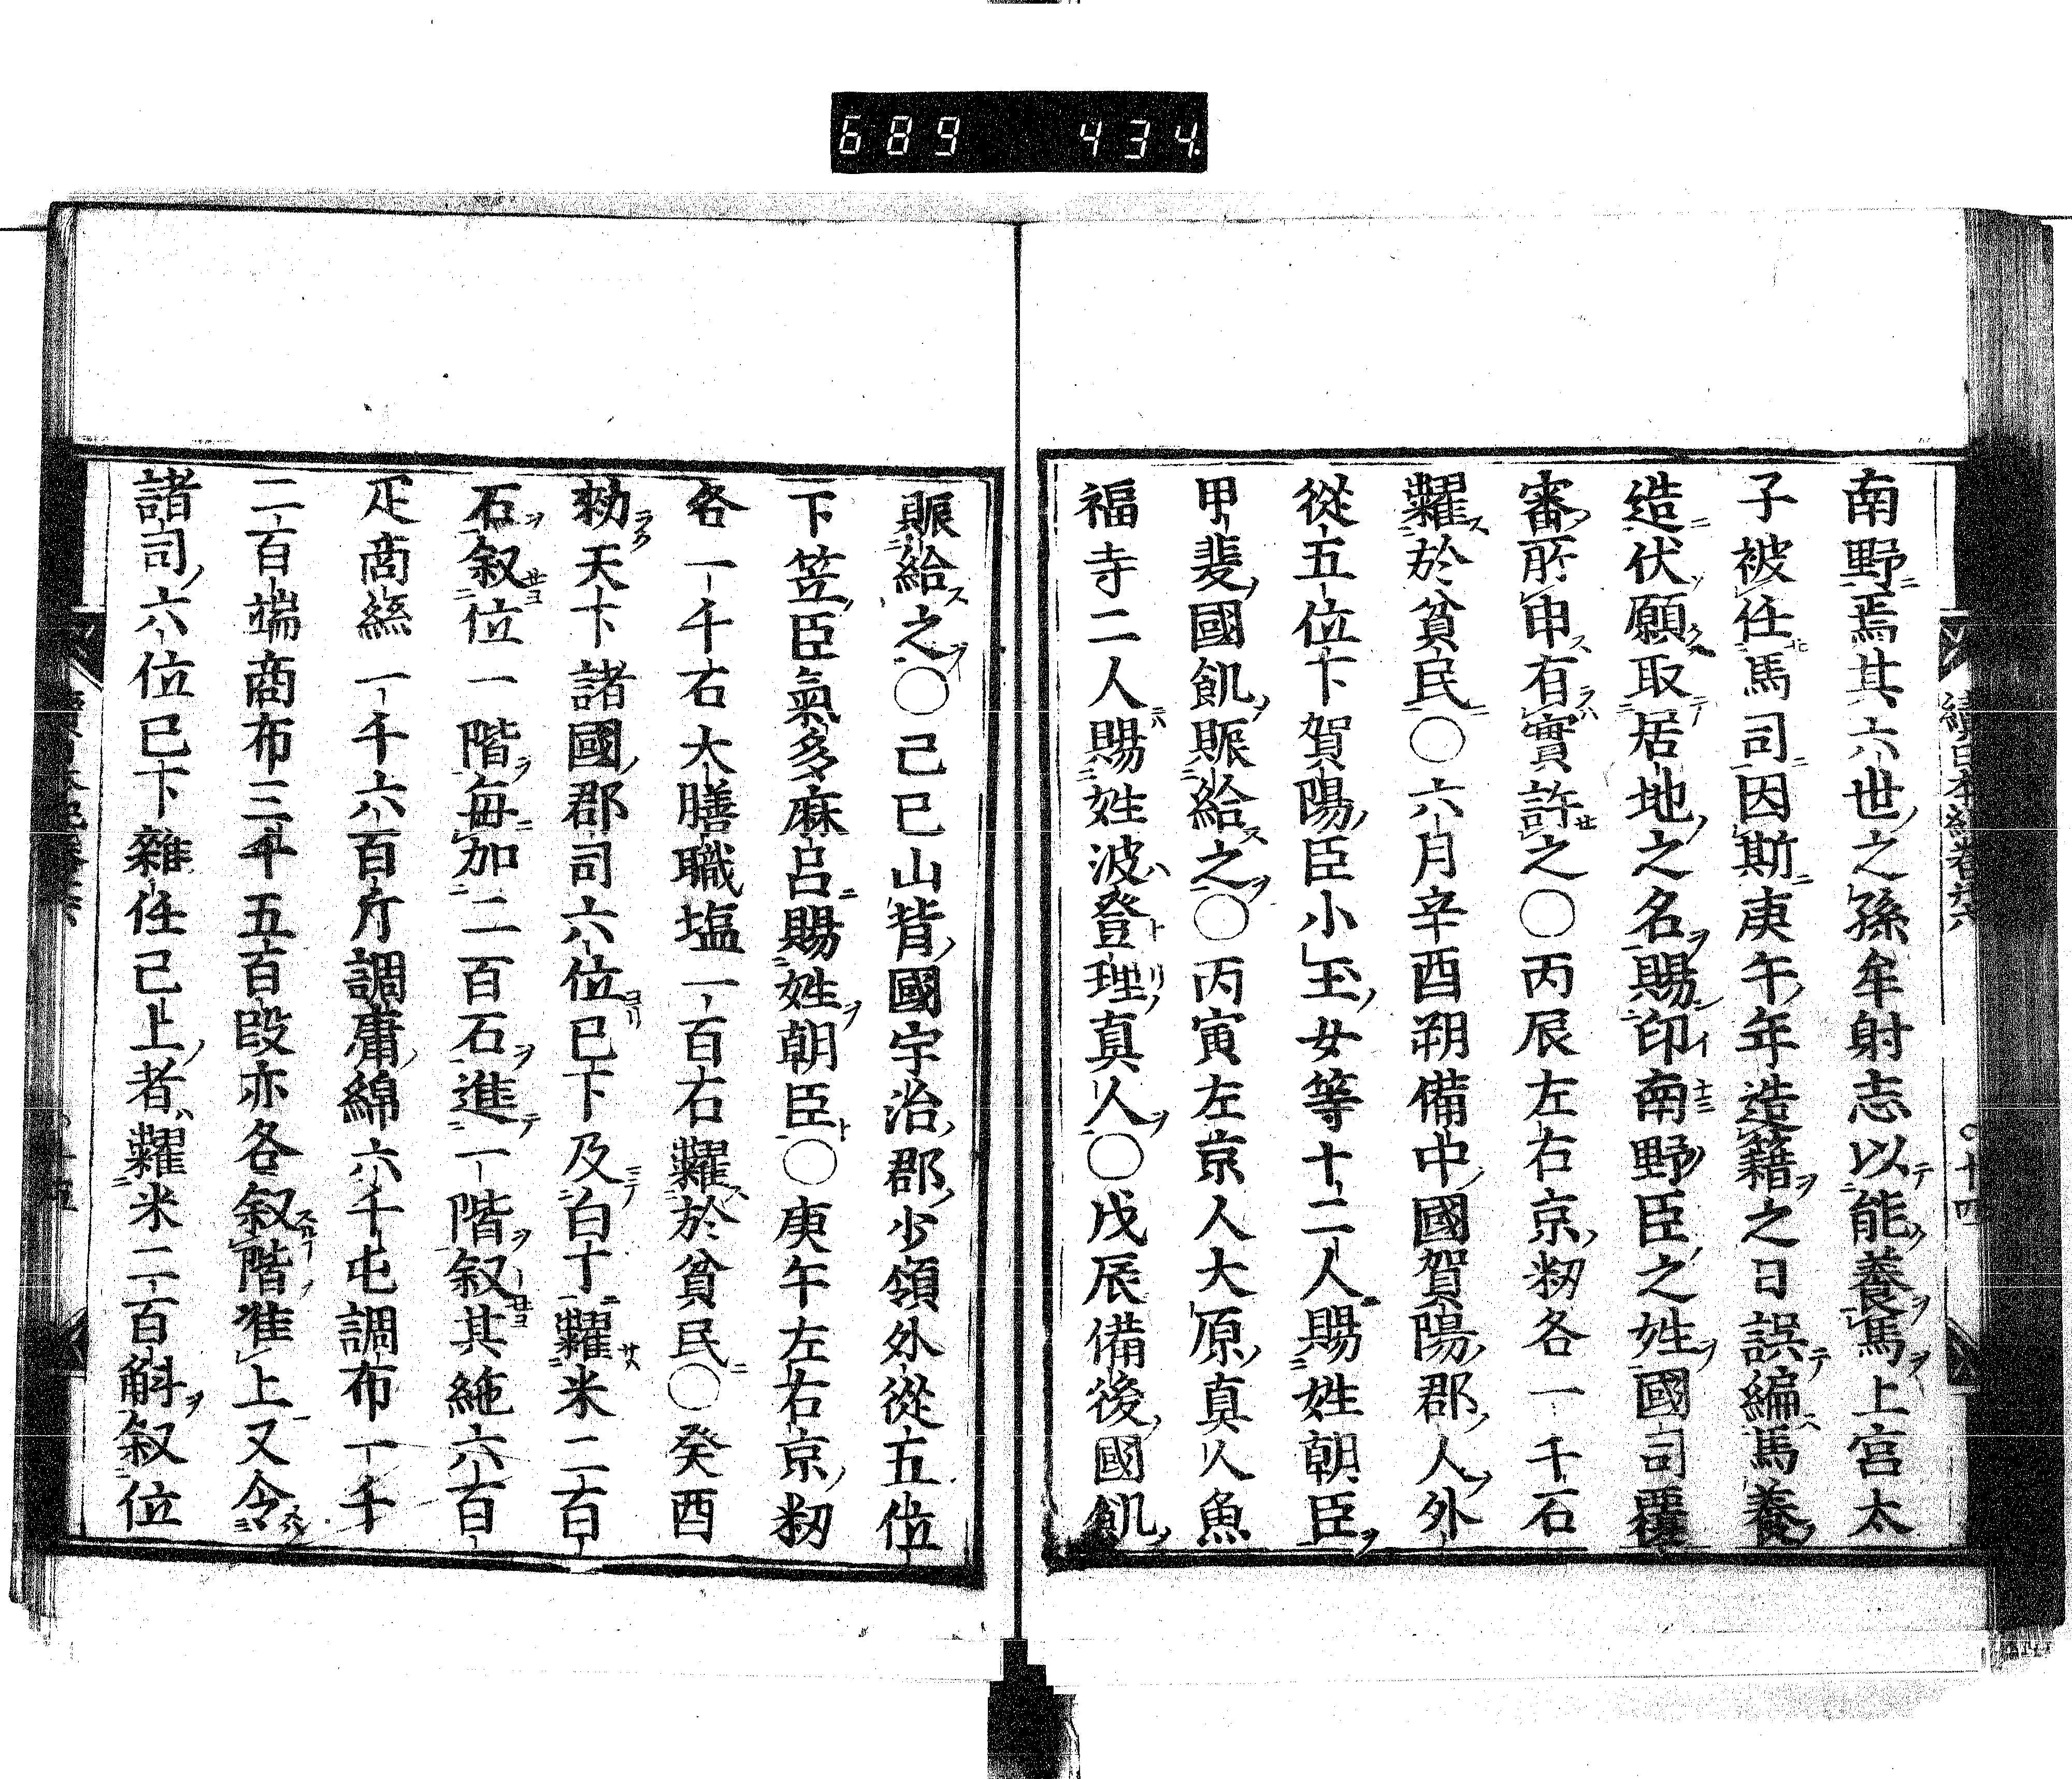 689 434
南野焉其六世之孫牟射志以能養馬上宮太
子被任馬司因斯庚午年造籍之日誤編馬養
造伏願取居地之名賜印南野臣之姓國司覆
審所申有實許之○丙辰左右京籾各一千石
糶於貧民○六月辛酉朔備中國賀陽郡人外
從五位下賀陽臣小玉女等十二人賜姓朝臣
甲斐國飢賑給之○丙寅左京人大原真人魚
福寺二人賜姓波登理真人○戊辰備後國飢
賑給之○己巳山背國宇治郡少領外從五位
下笠臣氣多麻呂賜姓朝臣○庚午左右京籾
各一千石大膳職塩一百石糶於貧民○癸酉
勑天下諸國郡司六位已下及白丁糶米二百
石叙位一階每加二百石進一階叙其絁六百
疋商絲一千六百斤調庸綿六千屯調布一千
二百端商布三千五百段亦各叙階准上又令
諸司六位已下雜任已上者糶米二百斛叙位